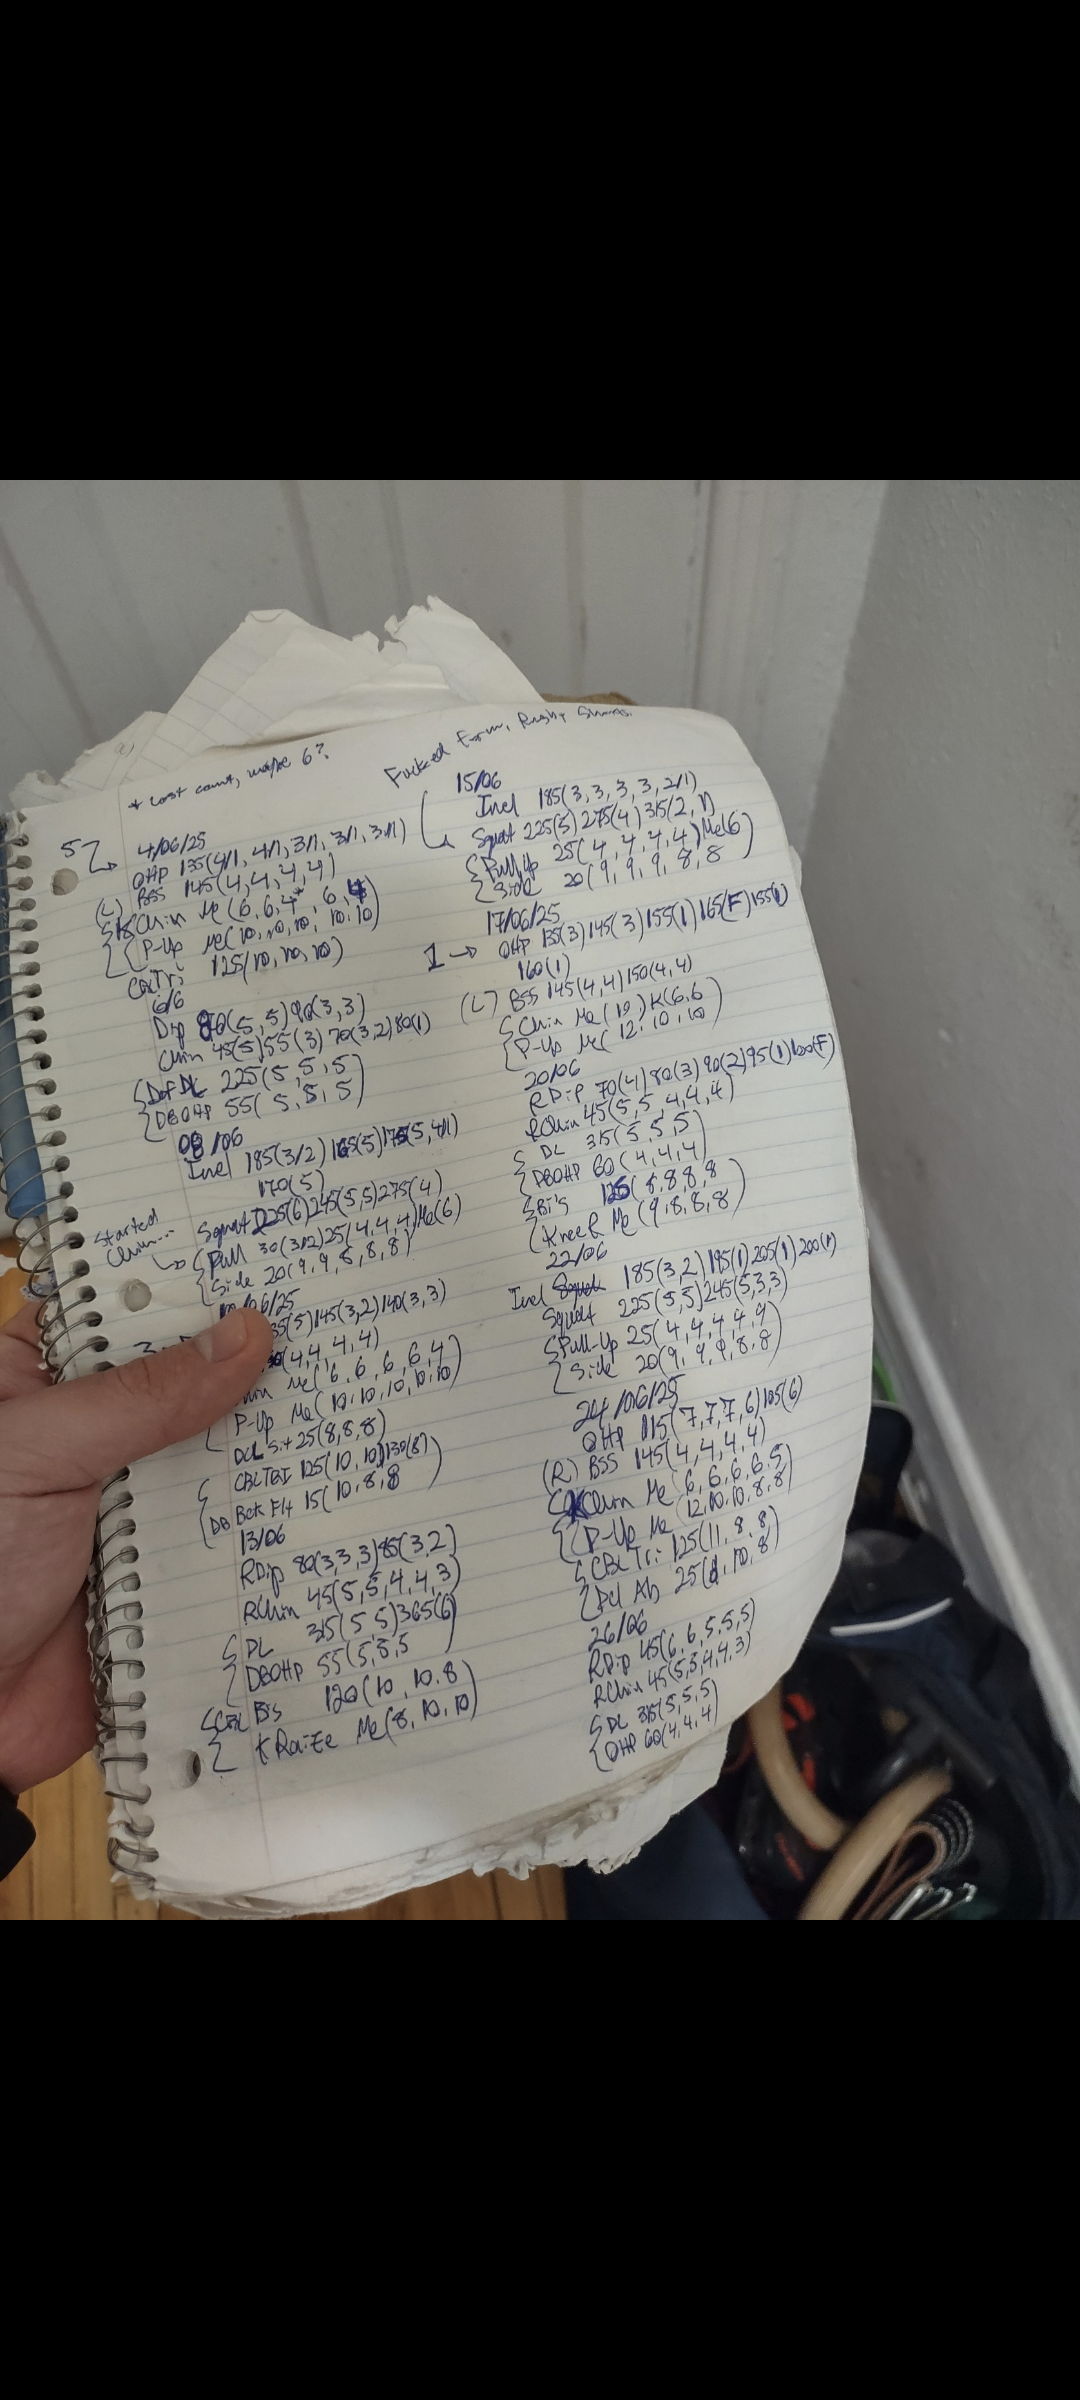 * Lost count, maybe 6?
5
4/06/25
OHP 135(4/1, 4/1, 3/1, 3/1, 3/1)
(L) BSS 145(4,4,4,4)
Chin Me(6,6,4*,6,4)
P-Up Me(10,10,10,10,10)
CBLTri 125(10,10,10)
6/6
Dip 80(5,5)90(3,3)
Chin 45(5)55(3)70(3,2)80(1)
Def DL 225(5,5,5)
DBOHP 55(5,5,5)
08/06
Incl 185(3/2)165(5)175(5,4/1)
170(5)
Started Chin...
Squat 225(6)245(5,5)275(4)
Pull 30(3/12)25(4,4,4)Me(6)
Side 20(9,9,8,8,8)
06/25
3
35(5)145(3,2)140(3,3)
(4,4,4,4)
Me(6,6,6,6,4)
P-Up Me(10,10,10,10,10)
DCL Sit 25(8,8,8)
CBLTRI 125(10,10)130(8)
DB Bck Fly 15(10,8,8)
13/06
RDip 80(3,3,3)85(3,2)
RChin 45(5,5,4,4,3)
DL 315(5,5)365(6)
DBOHP 55(5,5,5)
CBL Bis 120(10,10,8)
K Raize Me(8,10,10)
Fucked Form, Rugby
15/06
Incl 185(3,3,3,3,2/1)
Squat 225(5)275(4)315(2,1)
Pull Up 25(4,4,4,4)Me(6)
Side 20(9,9,9,8,8)
17/06/25
1 → OHP 135(3)145(3)155(1)165(F)155(1)
160(1)
(L) BSS 145(4,4)150(4,4)
Chin Me(10)K(6,6)
P-Up Me(12,10,10)
20/06
RDip 70(4)80(3)90(2)95(1)100(F)
RChin 45(5,5,4,4,4)
DL 315(5,5,5)
DBOHP 60(4,4,4)
Bi's (8,8,8,8)
Knee R Me(9,8,8,8)
22/06
Incl 185(3,2)195(1)205(1)200(1)
Squat 225(5,5)245(5,3,3)
Pull-Up 25(4,4,4,4,4)
Side 20(9,9,9,8,8)
24/06/25
OHP 115(7,7,7,6)105(6)
(R) BSS 145(4,4,4,4)
Chin Me(6,6,6,6,5)
P-Up Me(12,10,10,8,8)
CBLTri 125(11,8,8)
Dcl Ab 25(10,8)
26/06
RDip 45(6,6,5,5,5)
RChin 45(5,5,4,4,3)
DL 315(5,5,5)
OHP 60(4,4,4)